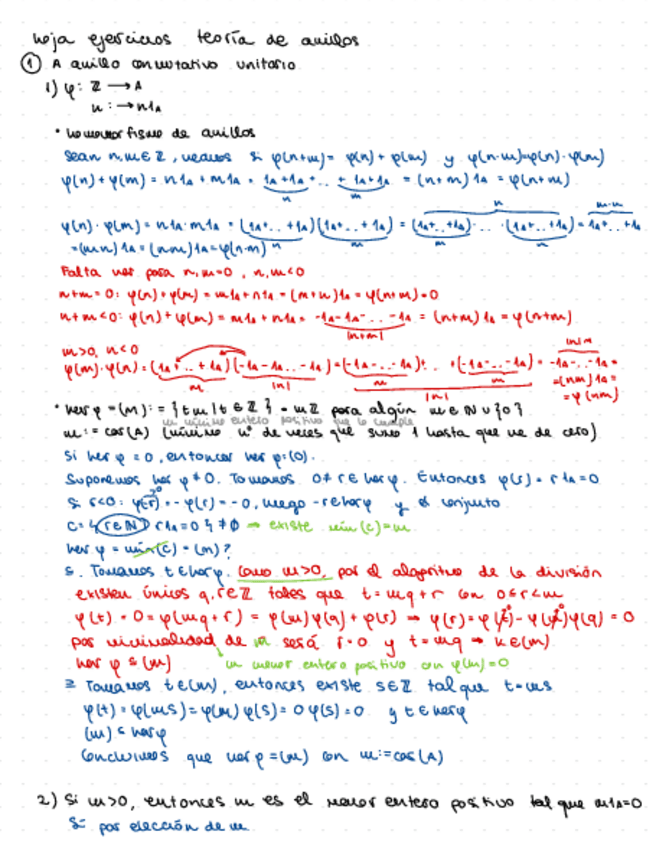 hoja ejercicios teoría de anillos
① A anillo conmutativo unitario
1) φ: ℤ → A
n: → n1_A
• homomorfismo de anillos
Sean n, m ∈ ℤ, veamos si φ(n+m) = φ(n) + φ(m) y φ(n·m) = φ(n)·φ(m)
φ(n) + φ(m) = n1_A + m1_A = 1_A+1_A+..+1_A+1_A = (n+m)1_A = φ(n+m)
n m
n m·n
φ(n)·φ(m) = n1_A·m1_A = (1_A+..+1_A)(1_A+..+1_A) = (1_A+..+1_A)·...·(1_A+..+1_A) = 1_A+..+1_A
n m m m
= (m·n)1_A = (n·m)1_A = φ(n·m)
Falta ver para n, m = 0, n, m < 0
n+m = 0: φ(n) + φ(m) = m1_A + n1_A = (m+n)1_A = φ(n+m) = 0
n+m < 0: φ(n) + φ(m) = m1_A + n1_A = -1_A-1_A-..-1_A = (n+m)1_A = φ(n+m)
|n+m|
m>0, n<0 |n|m
φ(m)·φ(n) = (1_A+..+1_A)(-1_A-1_A..-1_A) = (-1_A-..-1_A)+..+(-1_A-..-1_A) = -1_A-..-1_A =
m |n| m m = (nm)1_A =
|n| = φ(nm)
• ker φ = (m) := {tm | t ∈ ℤ} = mℤ para algún m ∈ ℕ ∪ {0}
m mínimo entero positivo que lo cumple
m := car(A) (mínimo nº de veces que sumo 1 hasta que me de cero)
Si ker φ = 0, entonces ker φ = (0).
Suponemos ker φ ≠ 0. Tomamos 0 ≠ r ∈ ker φ. Entonces φ(r) = r1_A = 0
Si r<0: φ(-r) = -φ(r) = -0, luego -r ∈ ker φ y el conjunto
C = {r ∈ ℕ | r1_A = 0} ≠ ∅ → existe min(C) = m
ker φ = min(C) = (m)?
⊆. Tomamos t ∈ ker φ. Como m>0, por el algoritmo de la división
existen únicos q, r ∈ ℤ tales que t = mq + r con 0 ≤ r < m
φ(t) = 0 = φ(mq+r) = φ(m)φ(q) + φ(r) → φ(r) = φ(t) - φ(m)φ(q) = 0
por minimalidad de m será r = 0 y t = mq → t ∈ (m)
ker φ ⊆ (m) m menor entero positivo con φ(m) = 0
⊇ Tomamos t ∈ (m), entonces existe s ∈ ℤ tal que t = ms
φ(t) = φ(ms) = φ(m)φ(s) = 0φ(s) = 0 y t ∈ ker φ
(m) ⊆ ker φ
Concluimos que ker φ = (m) con m := car(A)
2) Si m>0, entonces m es el menor entero positivo tal que m1_A = 0
Sí por elección de m